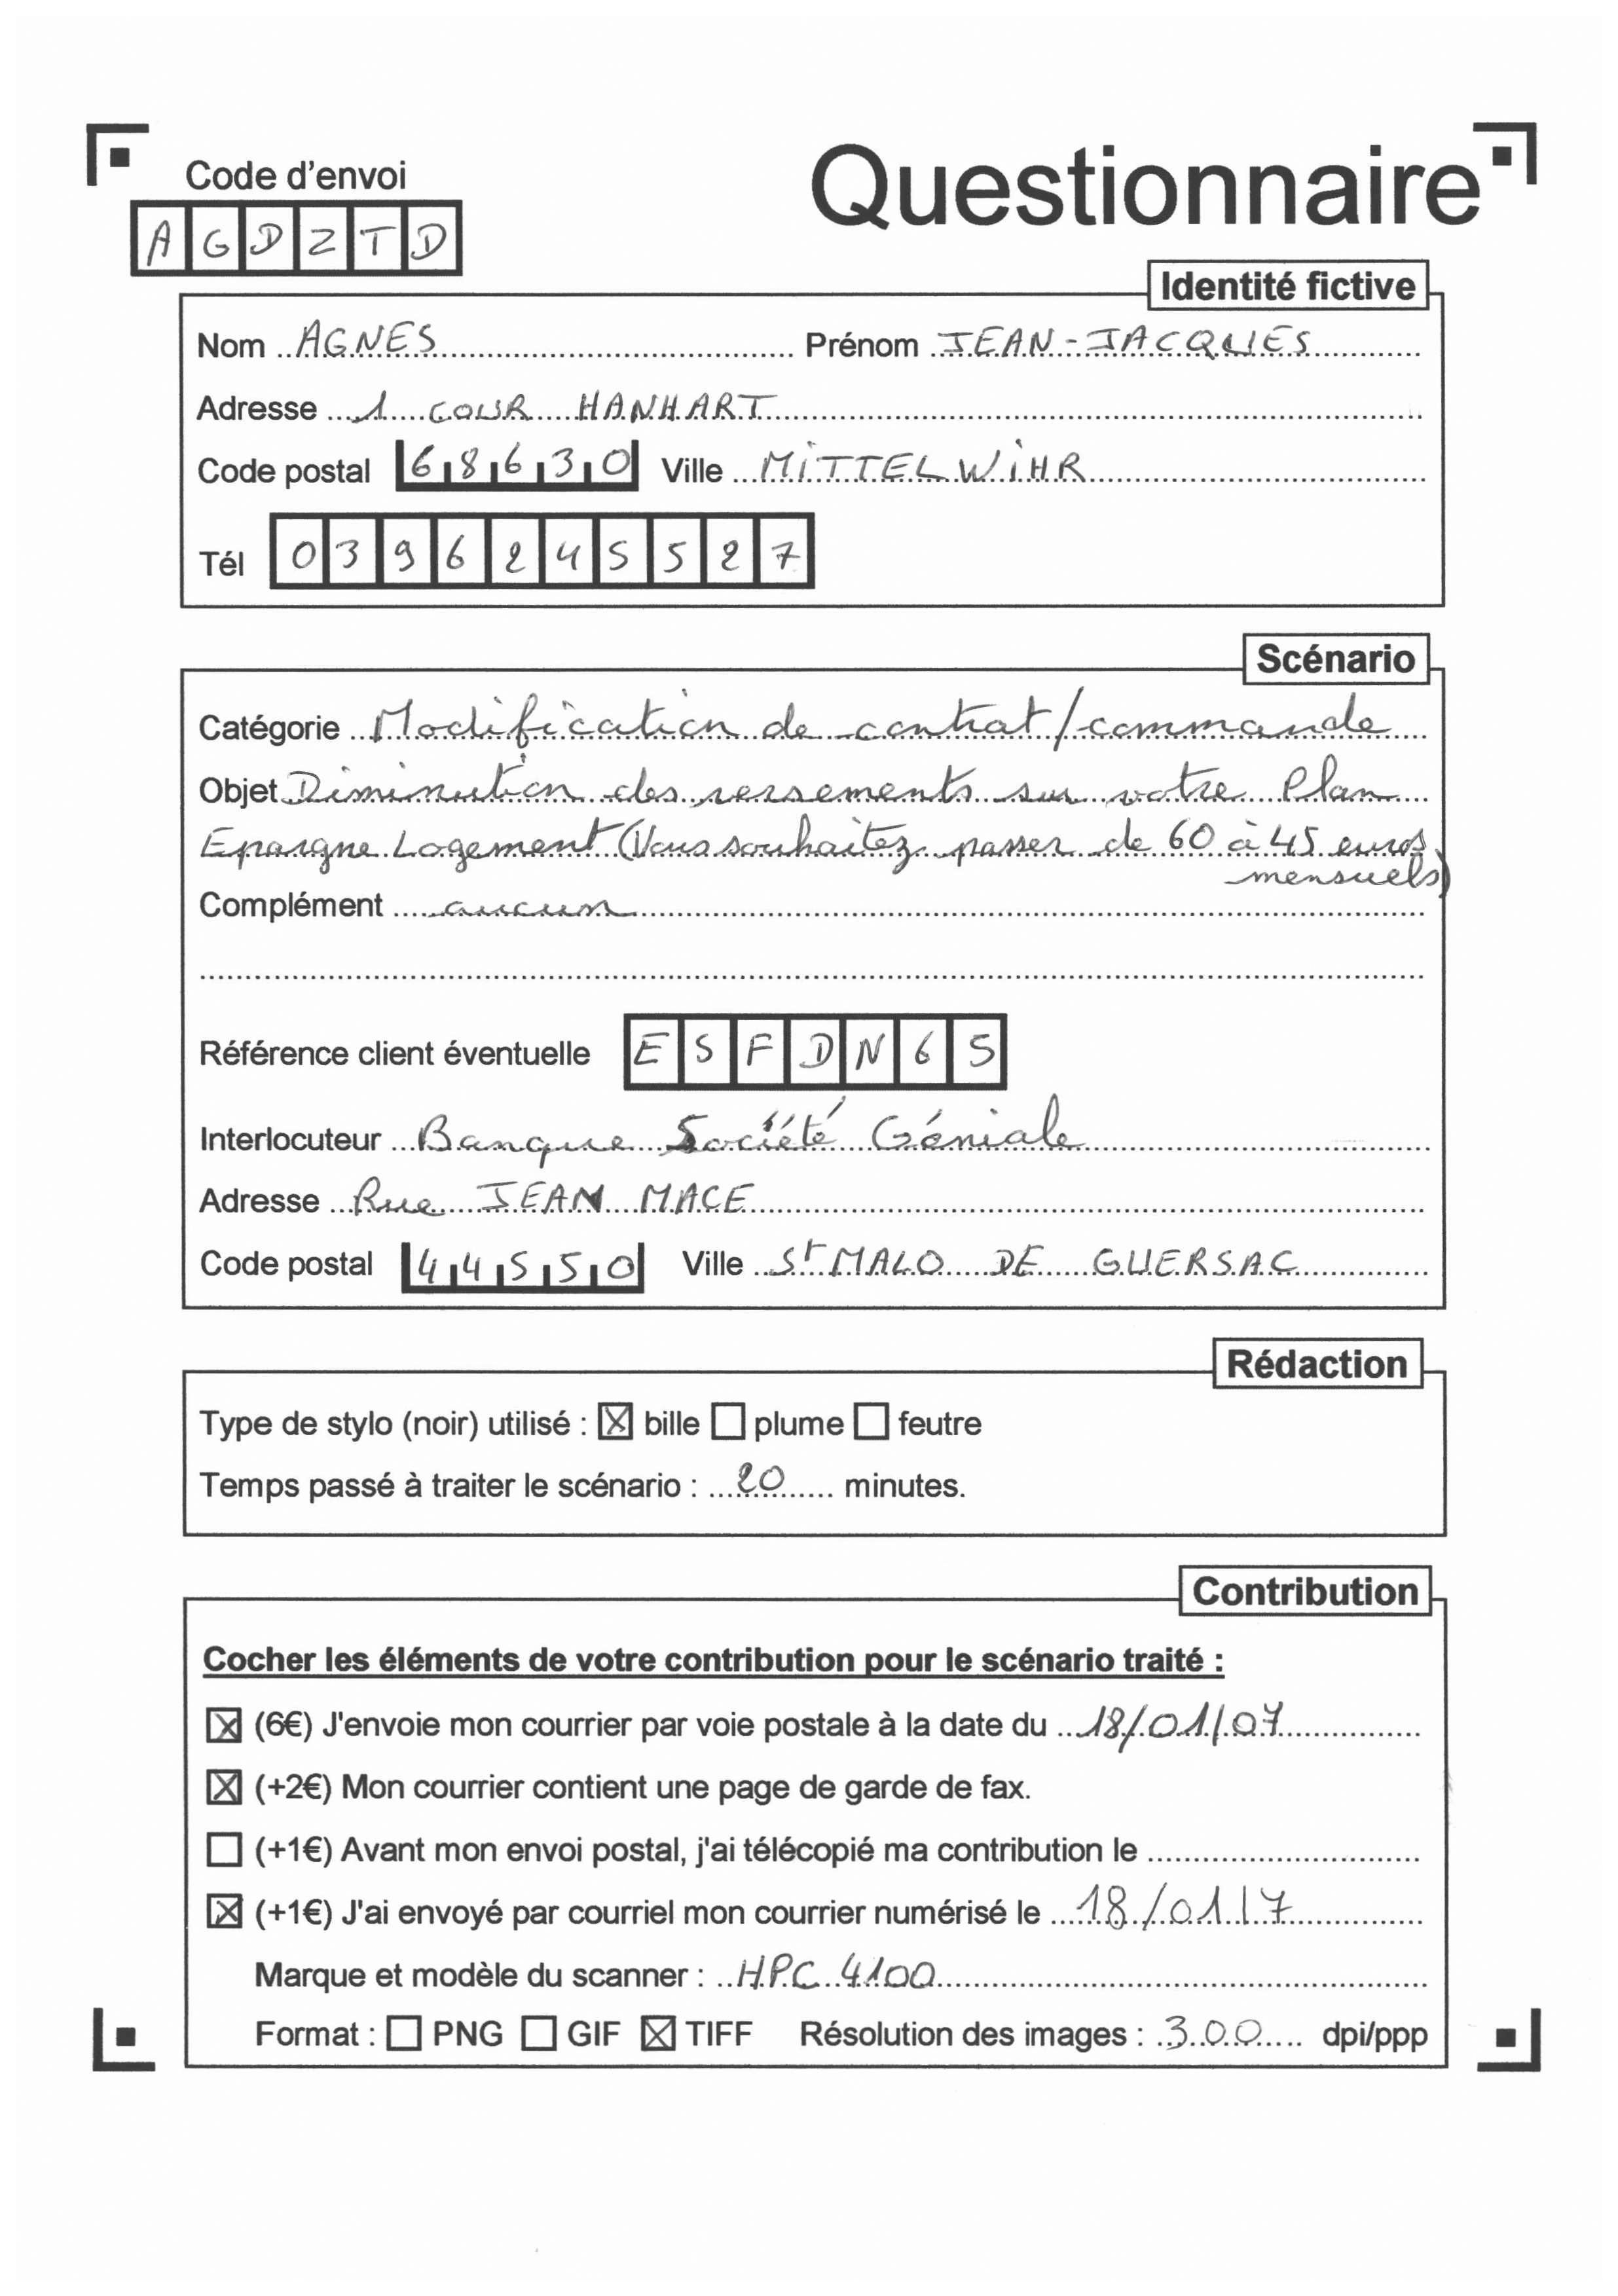 Code d'envoi
Questionnaire
AGDZTD
Identité fictive
Nom AGNES Prénom JEAN-JACQUES
Adresse 1 COUR HANHART
Code postal 68630 Ville MITTELWIHR
Tél 0396245527
Scénario
Catégorie Modification de contrat/commande
Objet Diminution des versements sur votre Plan
Epargne Logement (Vous souhaitez passer de 60 à 45 euros
mensuels)
Complément aucun
Référence client éventuelle ESFDN65
Interlocuteur Banque Société Géniale
Adresse Rue JEAN MACE
Code postal 44550 Ville St MALO DE GUERSAC
Rédaction
Type de stylo (noir) utilisé : ☒ bille ☐ plume ☐ feutre
Temps passé à traiter le scénario : 20 minutes.
Contribution
Cocher les éléments de votre contribution pour le scénario traité :
☒ (6€) J'envoie mon courrier par voie postale à la date du 18/01/07
☒ (+2€) Mon courrier contient une page de garde de fax.
☐ (+1€) Avant mon envoi postal, j'ai télécopié ma contribution le
☒ (+1€) J'ai envoyé par courriel mon courrier numérisé le 18/01/7
Marque et modèle du scanner : HPC 4100
Format : ☐ PNG ☐ GIF ☒ TIFF Résolution des images : 300 dpi/ppp